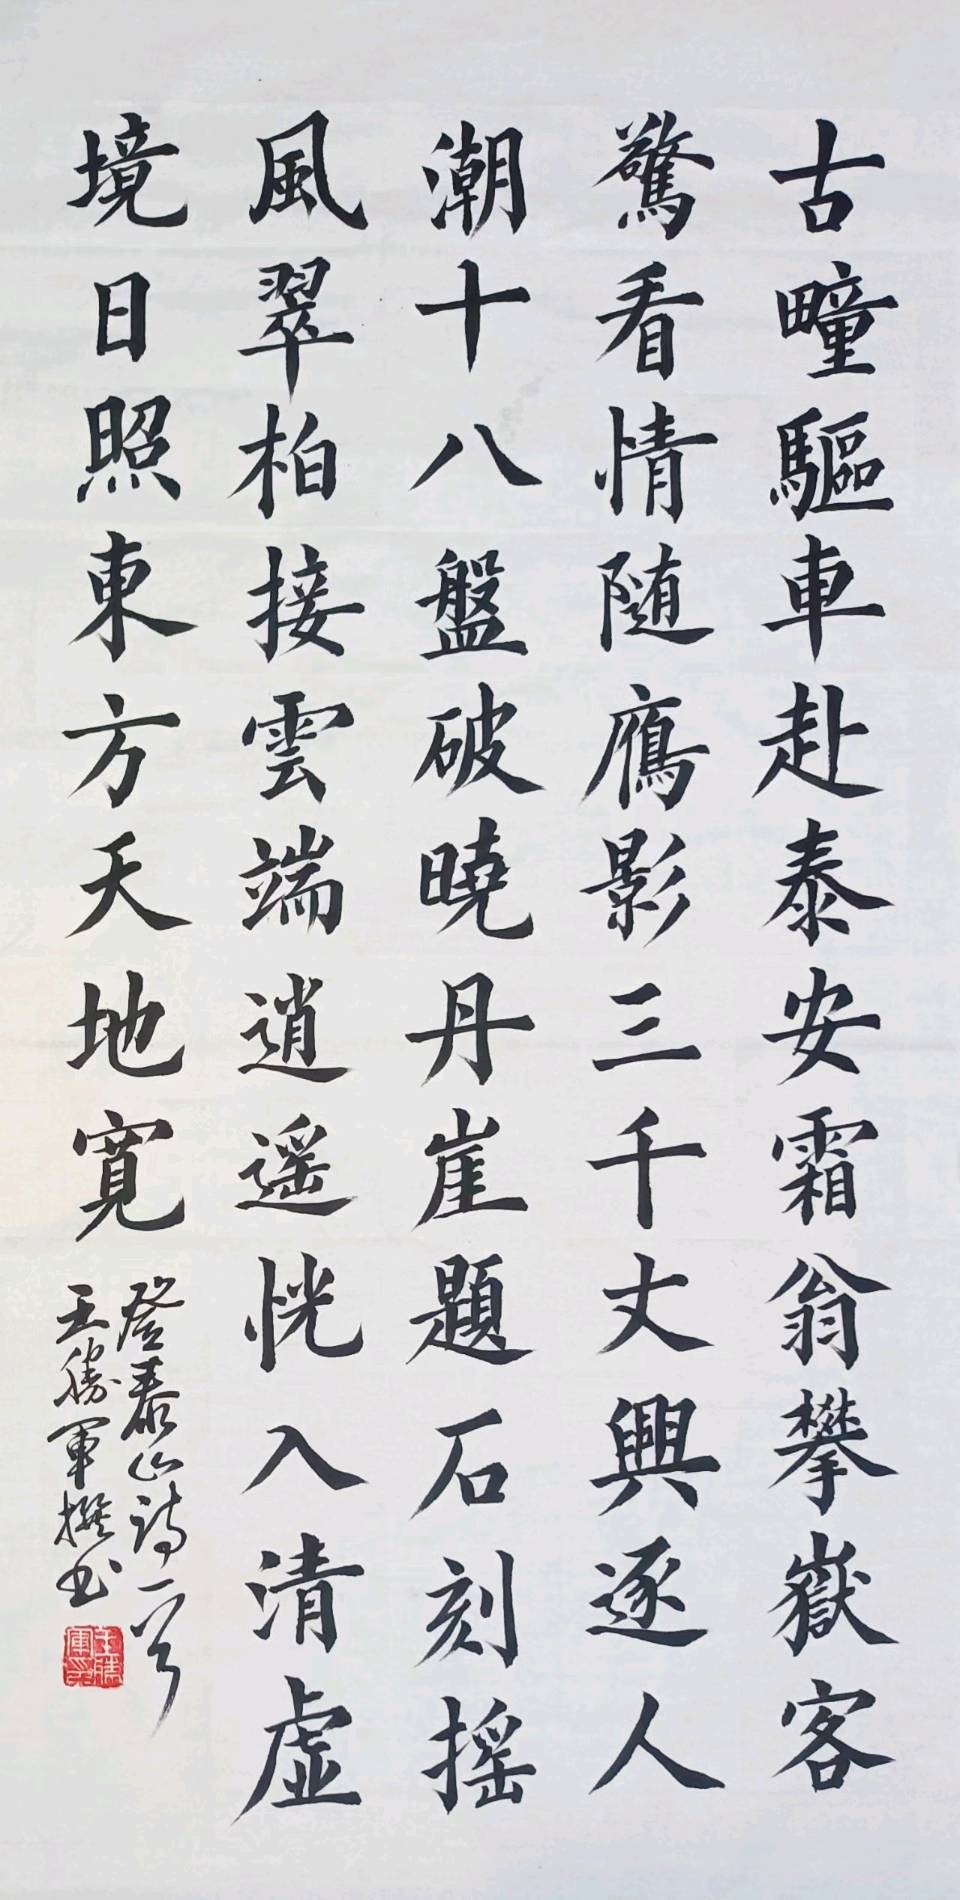 古疃驅車赴泰安霜翁攀嶽客
驚看情随鴈影三千丈興逐人
潮十八盤破曉丹崖題石刻摇
風翠柏接雲端逍遥恍入清虚
境日照東方天地寬
登泰山詩一首
王勝軍撰书